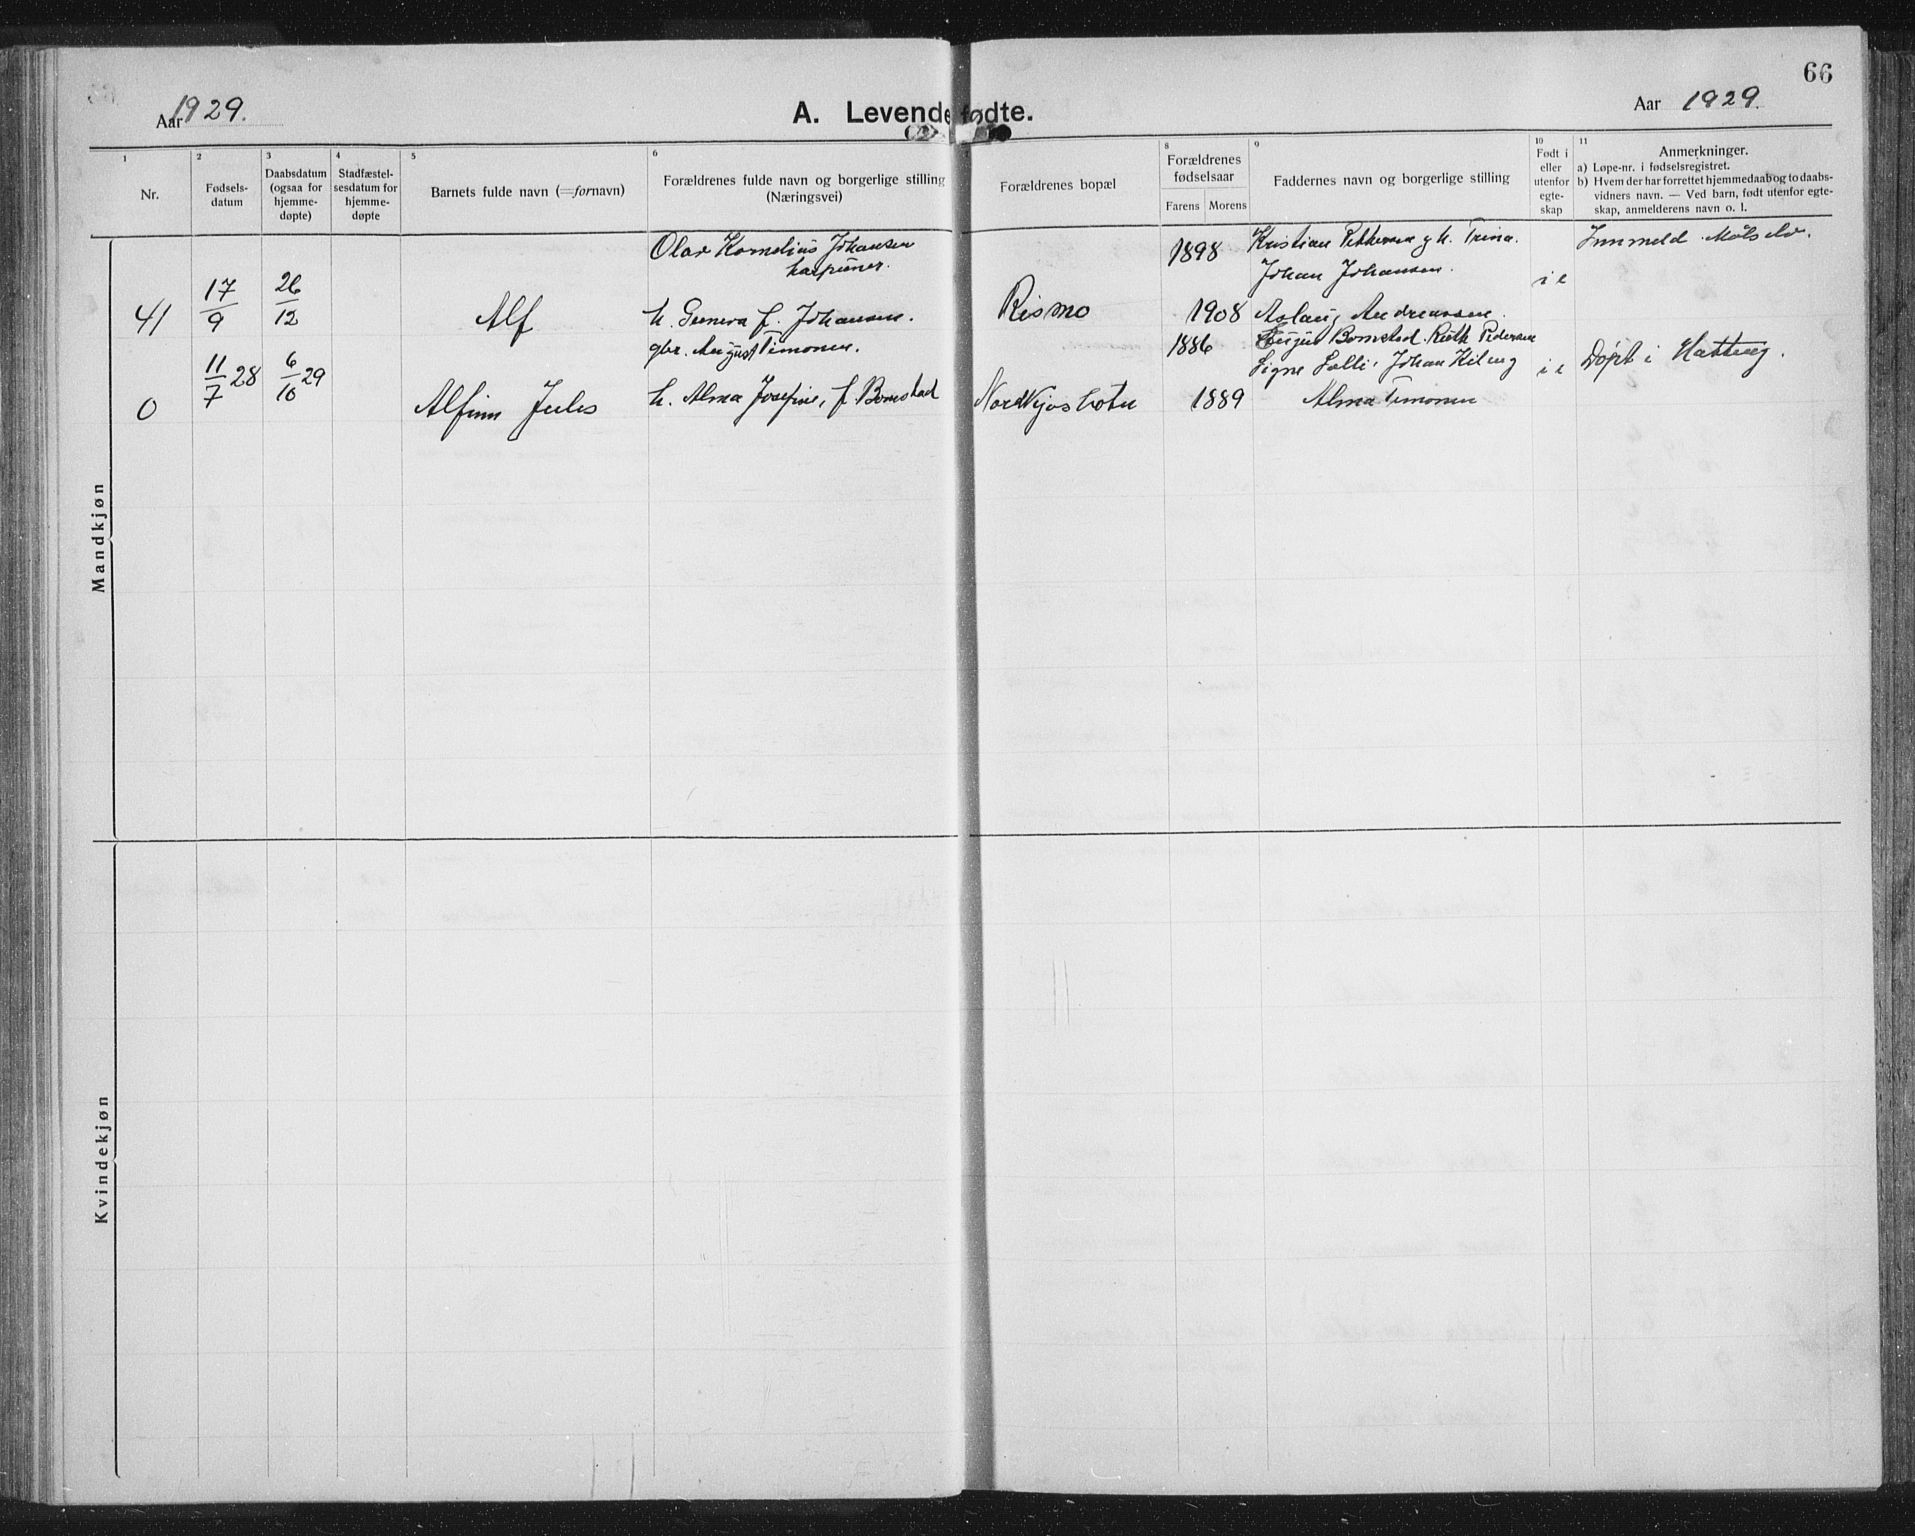 66
Aar 1929.
A. Levendefødte.
Aar 1929.
1
2
3
4
5
6
8
9
10
11
Nr.
Fødsels-
datum
Daabsdatum
(ogsaa for
hjemme-
døpte)
Stadfæstel-
sesdatum for
hjemme-
døpte
Barnets fulde navn (=fornavn)
Forældrenes fulde navn og borgerlige stilling
(Næringsvei)
Forældrenes bopæl
Forældrenes
fødselsaar
Farens Morens
Faddernes navn og borgerlige stilling
Født i
eller
utenfor
egte-
skap
Anmerkninger.
a) Løpe-nr. i fødselsregistret.
b) Hvem der har forrettet hjemmedaab og to daabs-
vidners navn. — Ved barn, født utenfor egte-
skap, anmelderens navn o. l.
Mandkjøn
41
17/9
26/12
Alf
Olav Kornelius Johansen
harpuner.
h. f. Johansen.
Rismo
1898
1908
Kristian Pettersen og h. Trina.
Johan Johansen.
Aslaug Andreassen.
i e
Innmeld. Målselv.
0
11/7 28
6/10 29
Alfinn Jules
gbr. August Timonen.
h. Alma Josefine, f. Bomstad
Nordkjosbotn
1886
1889
Bomstad. Ruth Pedersen
Signe Lolli, Johan
Alma Timonen
i e
Døpt i Hatteng.
Kvindekjøn